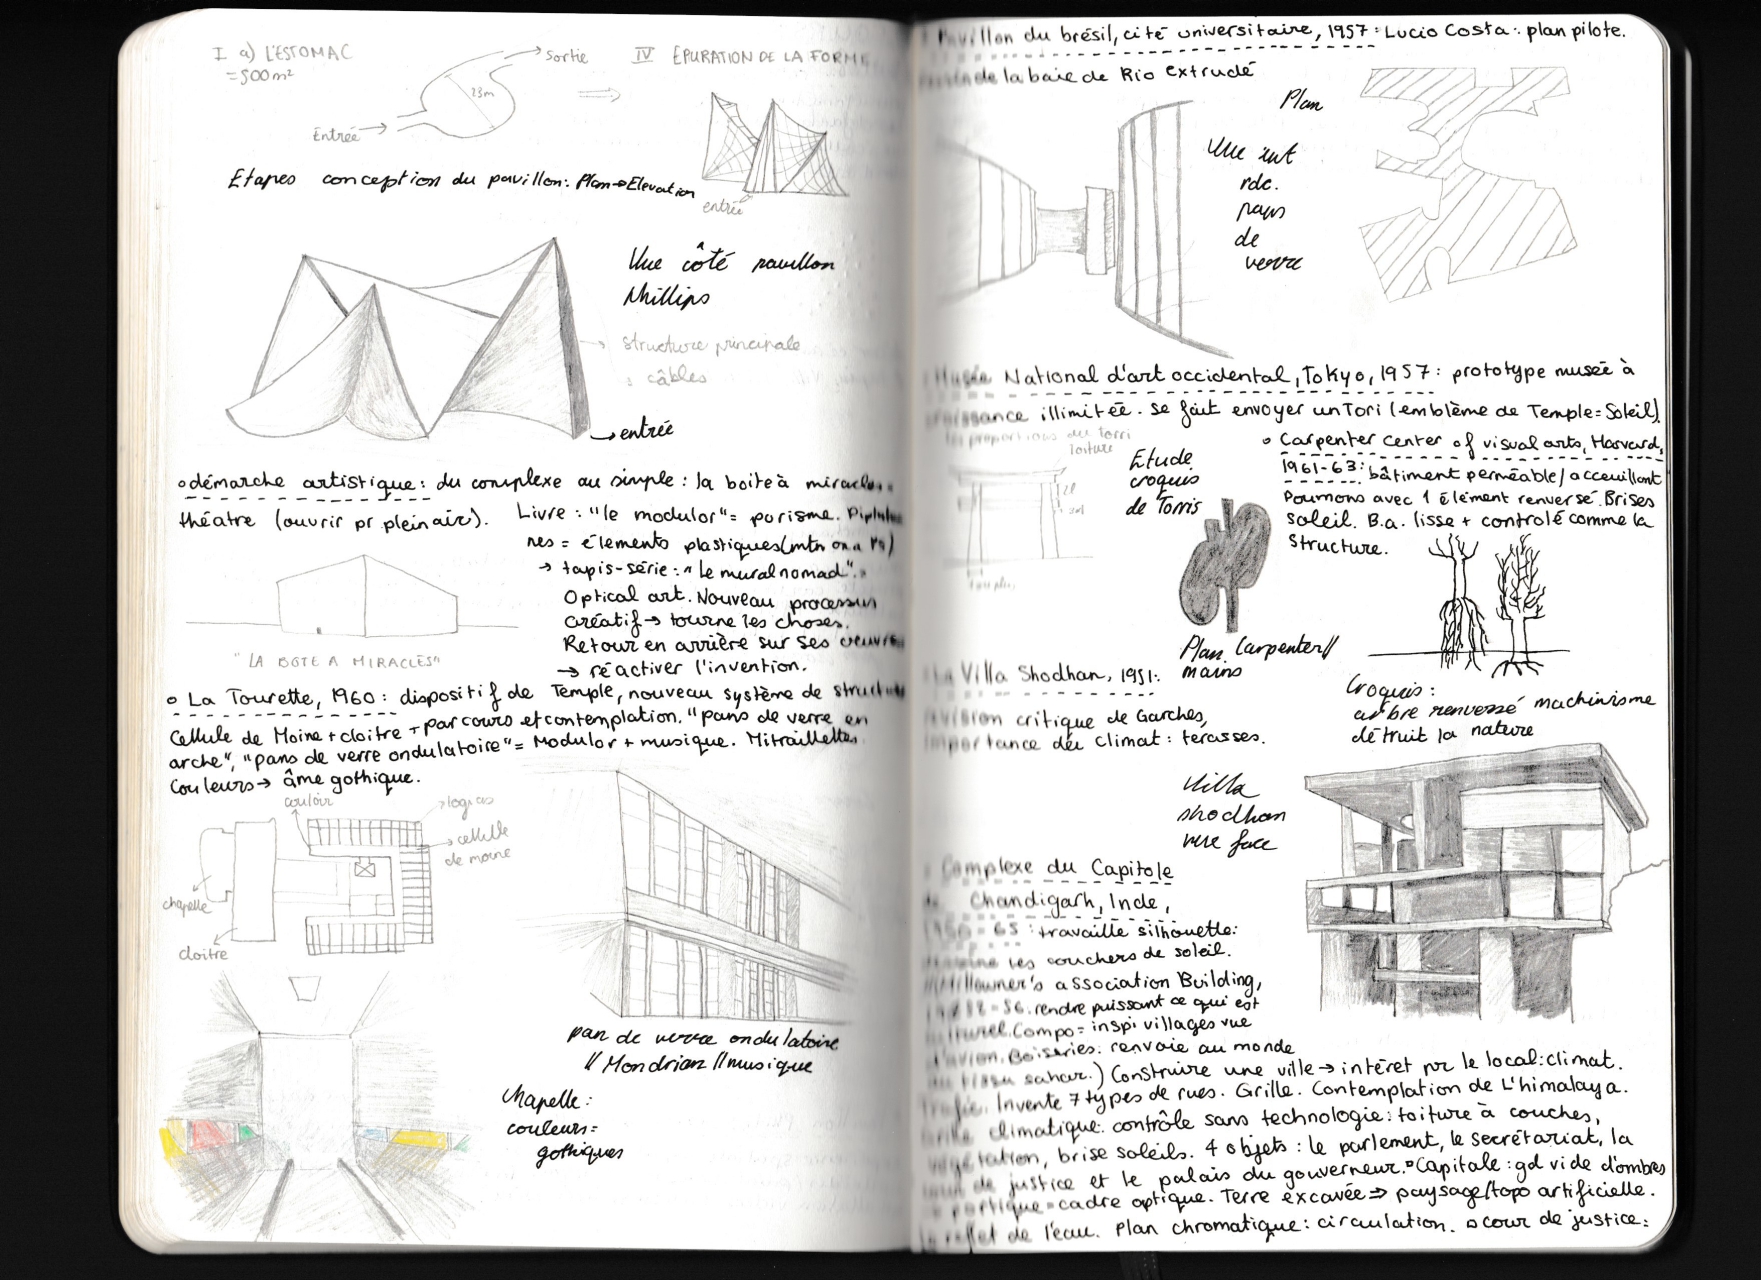 I a) L'ESTOMAC
=500m²
Sortie
23m
Entrée
IV EPURATION DE LA FORME
Etapes conception du pavillon: Plan→Elevation
entrée
Vue côté pavillon
Phillips
structure principale
câbles
entrée
démarche artistique: du complexe au simple: la boite à miracles=
théatre (ouvrir pr plein air).
Livre: "le modulor"= purisme.
nes = élements plastiques(mtn on a
→ tapis-série: "Le mural nomad".
Optical art. Nouveau processus
créatif → tourne les choses.
Retour en arrière sur ses oeuvres
→ réactiver l'invention.
"LA BOTE A MIRACLES"
La Tourette, 1960: dispositif de Temple, nouveau système de structure
Cellule de Moine + cloitre → parcours et contemplation. "pans de verre en
arche", "pans de verre ondulatoire"= Modulor + musique. Mitraillettes
Couleurs → âme gothique.
couloir
logias
cellule
de moine
chapelle
cloitre
pan de verre ondulatoire
// Mondrian // musique
Chapelle:
couleurs=
gothiques
Pavillon du brésil, cité universitaire, 1957: Lucio Costa: plan pilote.
de la baie de Rio extrudé
Plan
Vue int
rdc.
pans
de
verre
Musée National d'art occidental, Tokyo, 1957: prototype musée à
croissance illimitée. Se fait envoyer un Tori (emblème de Temple=Soleil).
les proportions du Torri
toiture
Etude
croquis
de Torris
Carpenter center of visual arts, Harvard,
1961-63: bâtiment perméable/acceuillant
Poumons avec 1 élément renversé. Brises
soleil. B.a. lisse + controlé comme la
structure.
Plan Carpenter//
mains
Croquis:
arbre renversé machinisme
détruit la nature
La Villa Shodhan, 1951:
révision critique de Garches,
importance du climat: terasses.
Villa
shodhan
vue face
Complexe du Capitole
de Chandigarh, Inde,
1950-65: travaille silhouette:
dessine les couchers de soleil.
Millowner's association Building,
56. rendre puissant ce qui est
culturel. Compo= inspi villages vue
d'avion. Boiseries: renvoie au monde
du tissu Construire une ville → intéret pr le local: climat.
trafic. Invente 7 types de rues. Grille. Contemplation de L'himalaya.
Grille climatique: contrôle sans technologie: toiture à couches,
végétation, brise soleils. 4 objets: le parlement, le secrétariat, la
cour de justice et le palais du gouverneur. Capitale: gd vide d'ombres
portique=cadre optique. Terre excavée ⇒ paysage/topo artificielle.
reflet de l'eau. Plan chromatique: circulation. cour de justice: